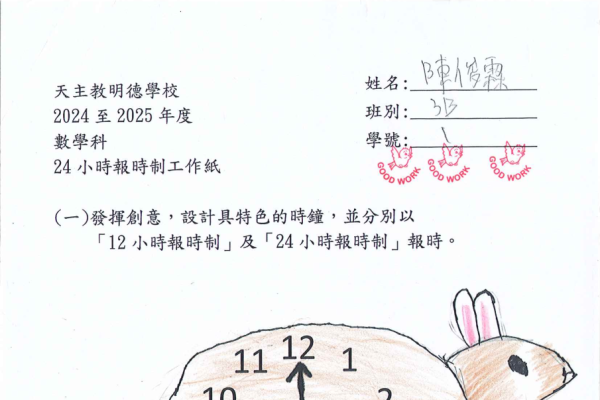 天主教明德學校
2024 至 2025 年度
數學科
24 小時報時制工作紙
姓名: 陳俊霖
班別: 3B
學號: 1
GOOD WORK
GOOD WORK
GOOD WORK
(一)發揮創意，設計具特色的時鐘，並分別以
「12 小時報時制」及「24 小時報時制」報時。
11 12 1
10 2